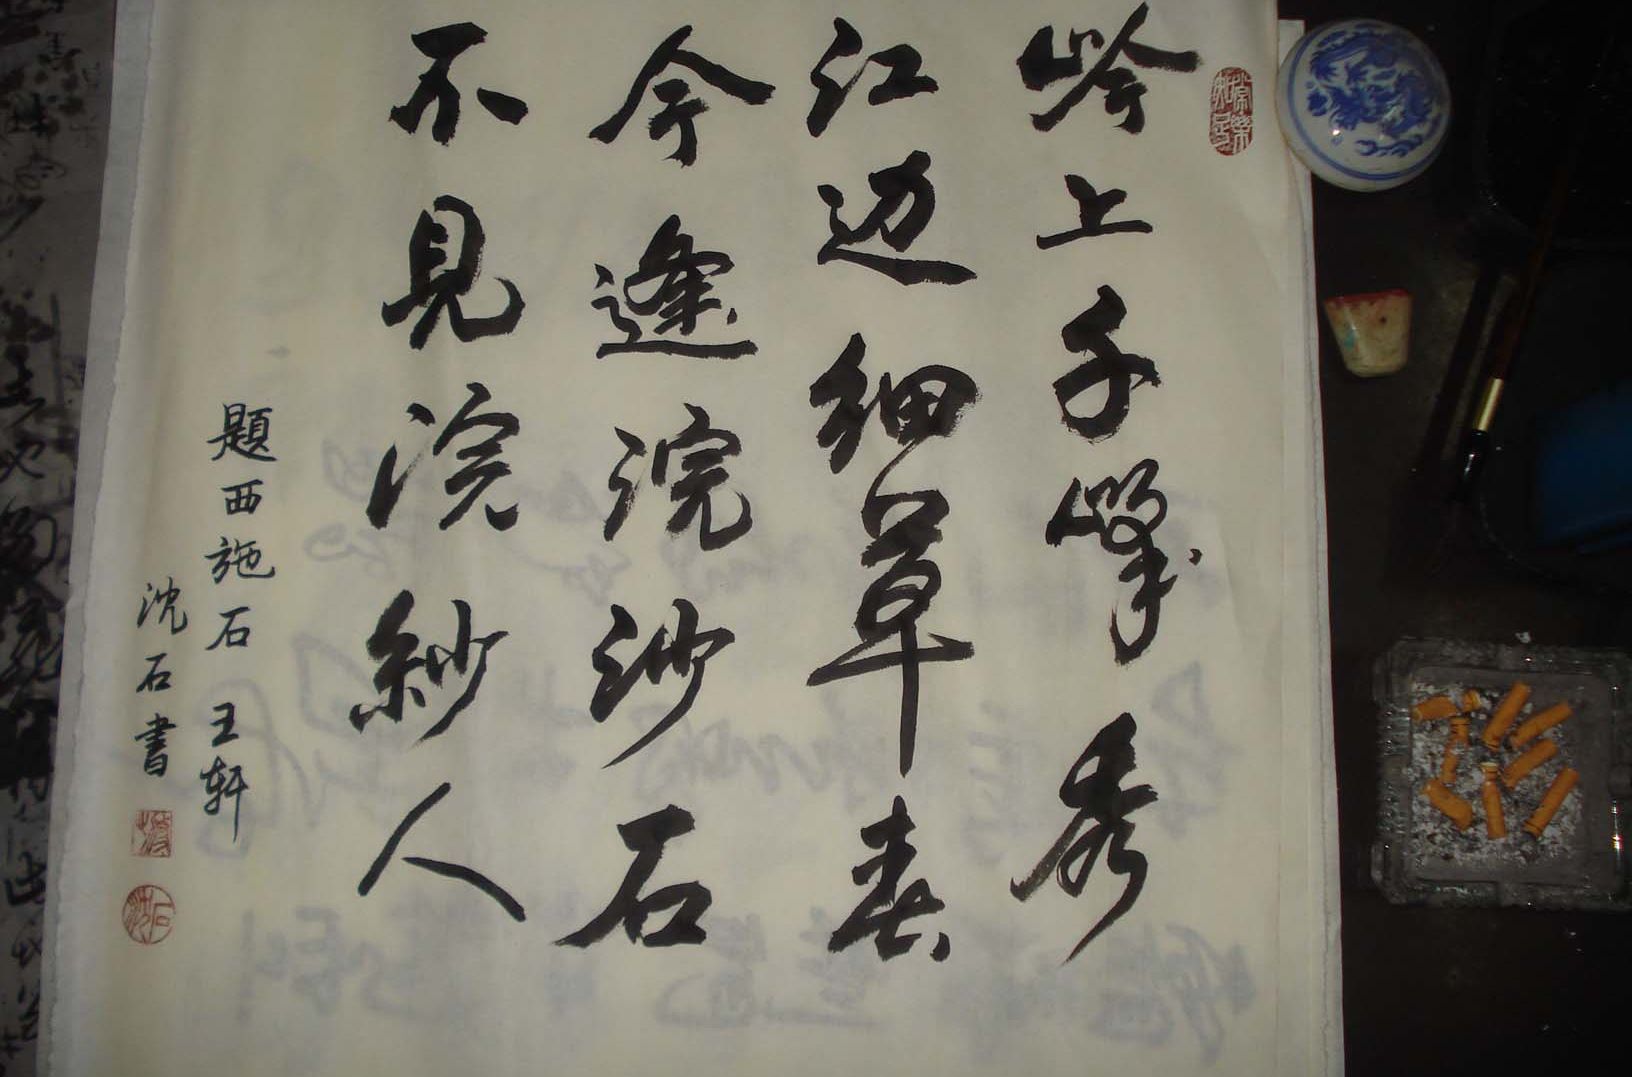 岭上千峰秀
江边细草春
今逢浣沙石
不見浣紗人
題西施石 王轩
沈石書